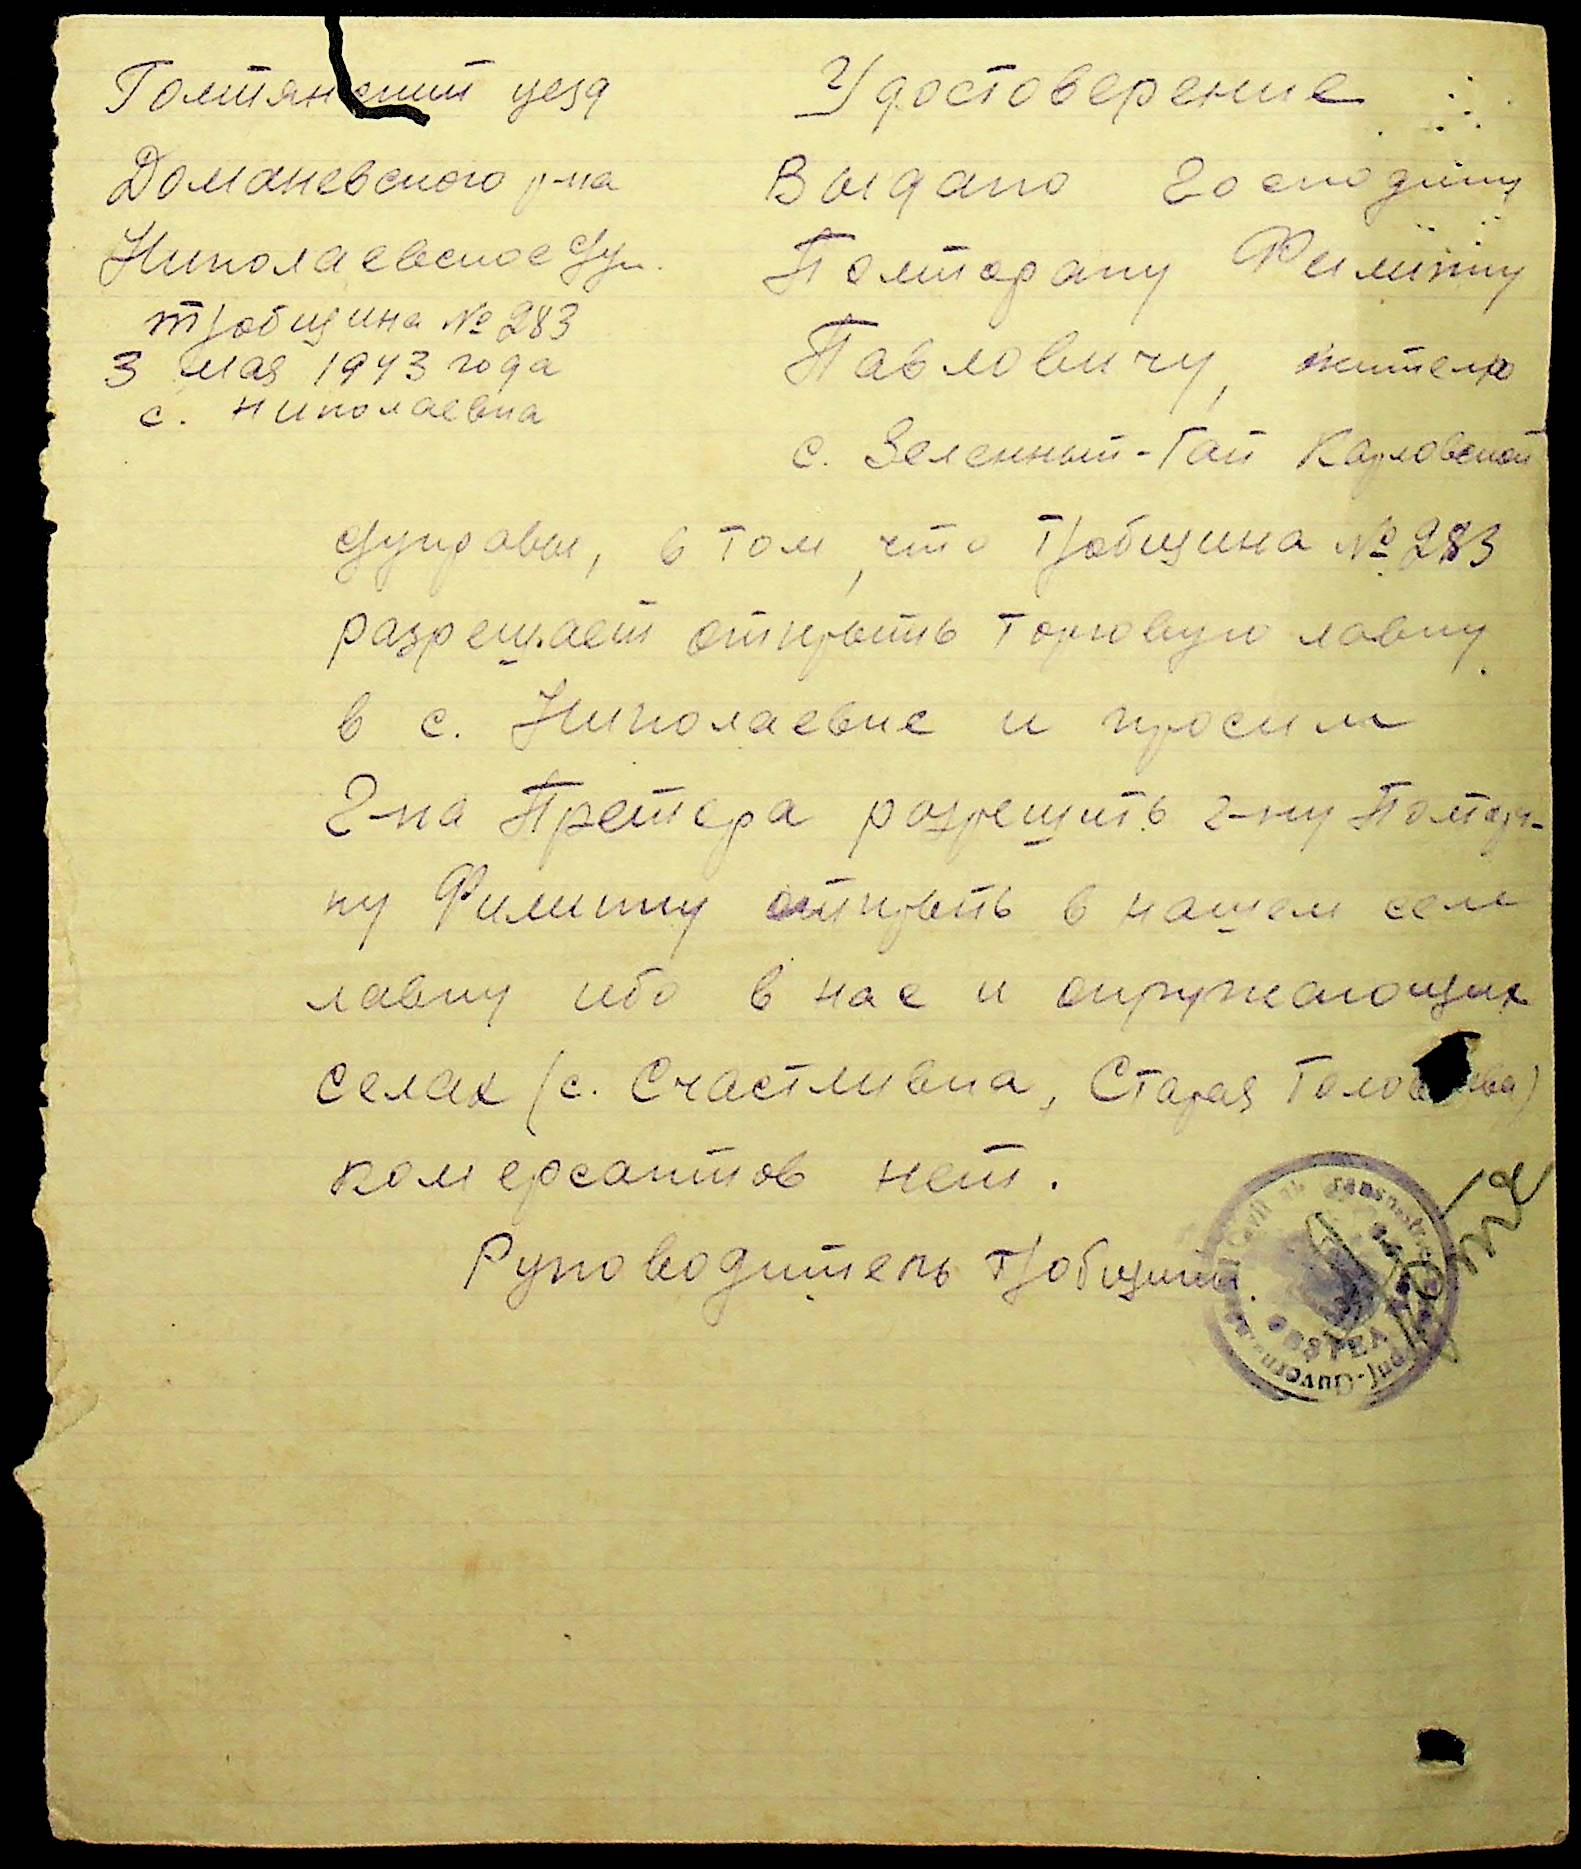 Голтянский уезд
Доманевского р-на
Николаевское Суп.
т/община № 283
3 мая 1943 года
с. Николаевка
Удостоверение
Выдано господину
Полтораку Филиппу
Павловичу, жителю
с. Зеленный-Гай Карловской
супровы, в том, что т/община № 283
разрешает открыть торговую лавку
в с. Николаевке и просим
г-на Претера разрешить г-ну Полтора-
ку Филиппу открыть в нашем селе
лавку ибо в нас и окружающих
селах (с. Счастливка, Старая
комерсантов нет.
Руководитель т/общины.